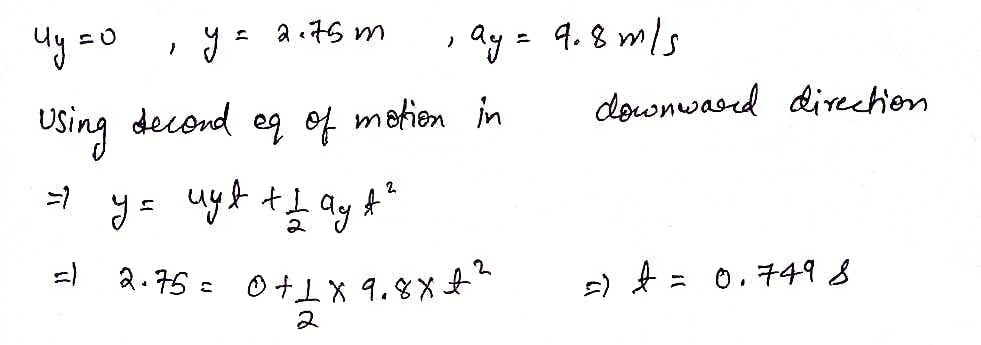 uy = 0 , y = 2.75 m , ay = 9.8 m/s
Using second eq of motion in downward direction
=) y = uyt + 1/2 ay t²
=) 2.75 = 0 + 1/2 × 9.8 × t² =) t = 0.749 s